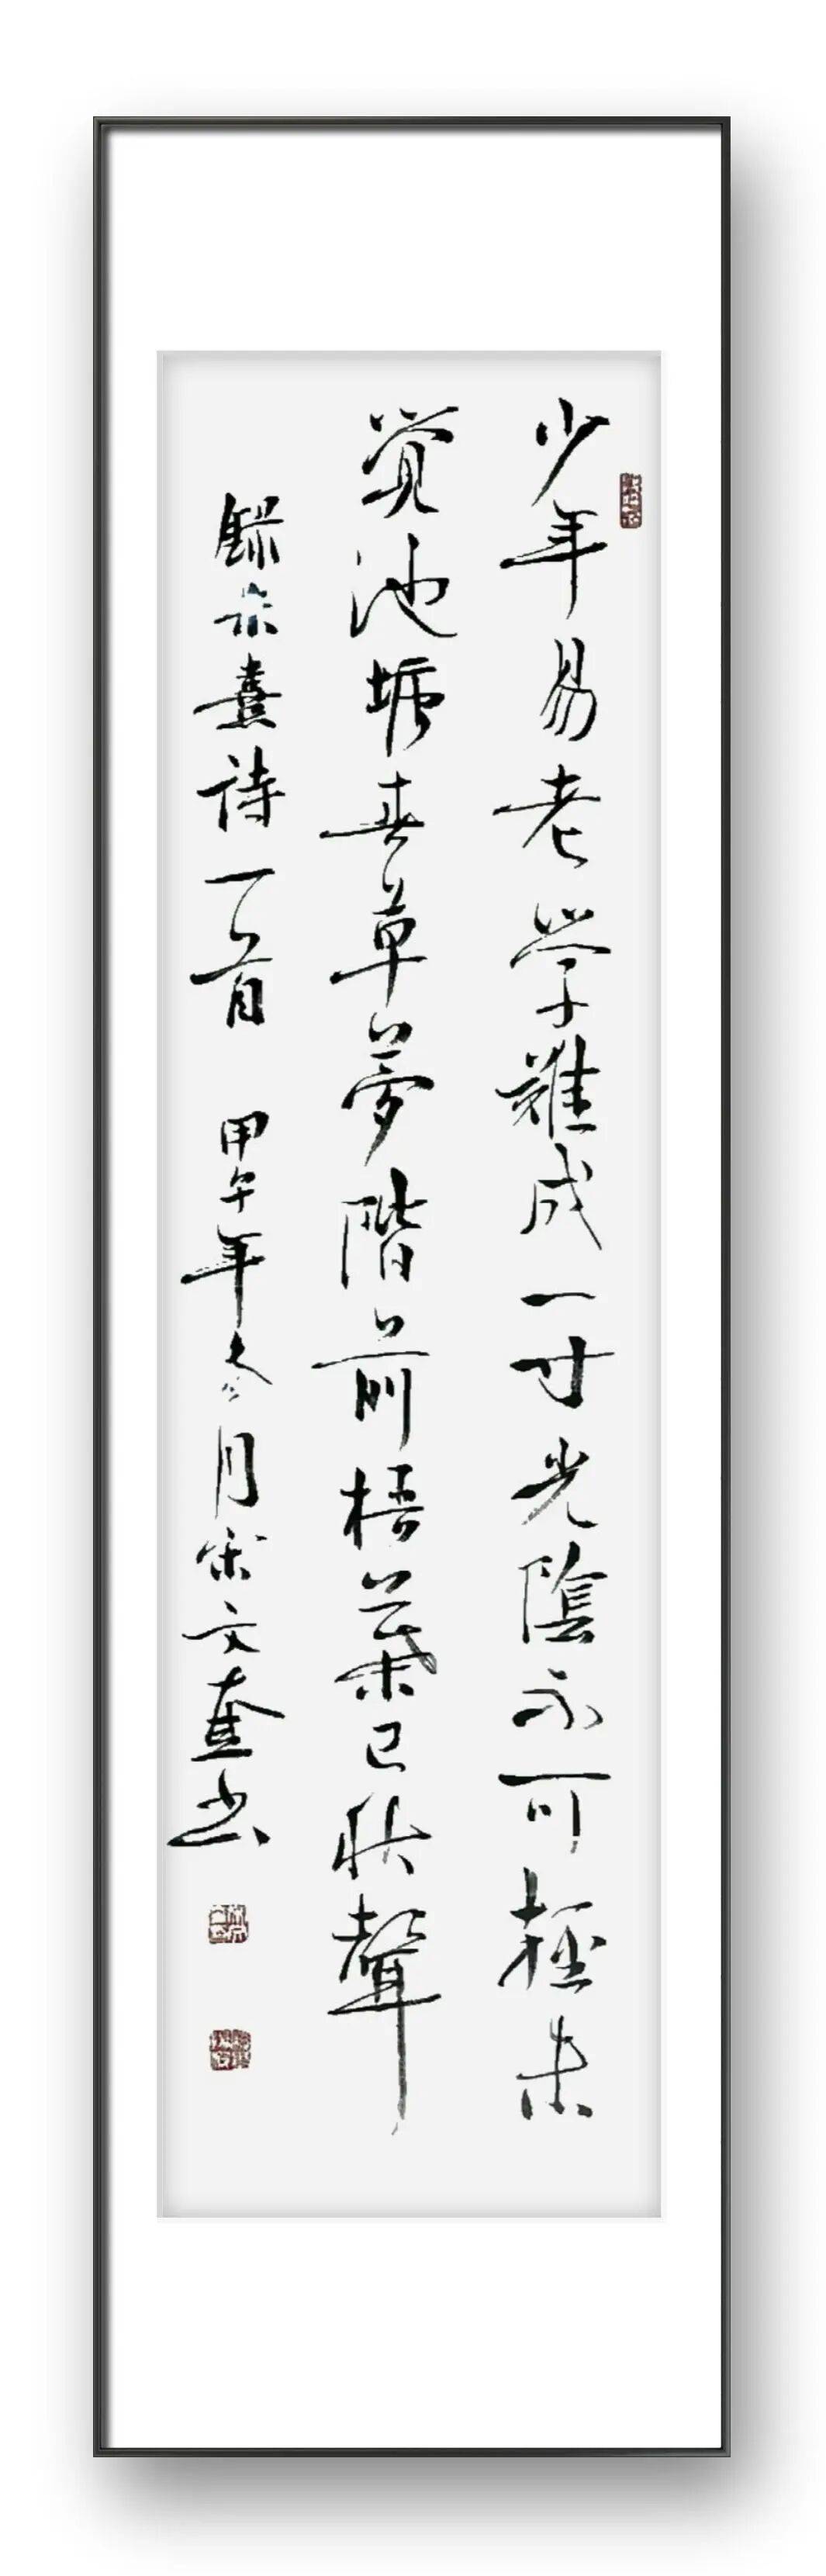 少年易老学難成一寸光陰不可輕未
覺池塘春草夢階前梧葉已秋聲
録朱熹詩一首 甲午年冬月宋文奎书